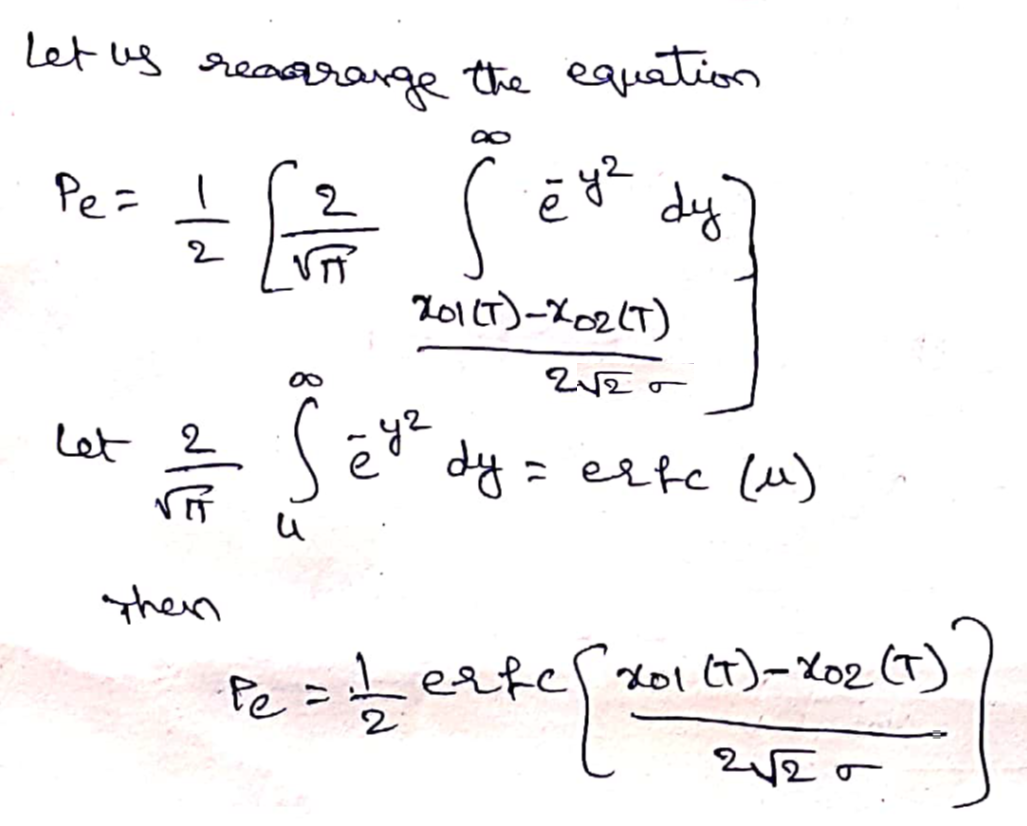 Let us rearrange the equation
Pe = 1/2 [ 2/√π ∫_{(x01(T)-x02(T))/(2√2 σ)}^{∞} e^{-y2} dy ]
Let 2/√π ∫_{u}^{∞} e^{-y2} dy = erfc (u)
Then
Pe = 1/2 erfc [ (x01(T)-x02(T))/(2√2 σ) ]